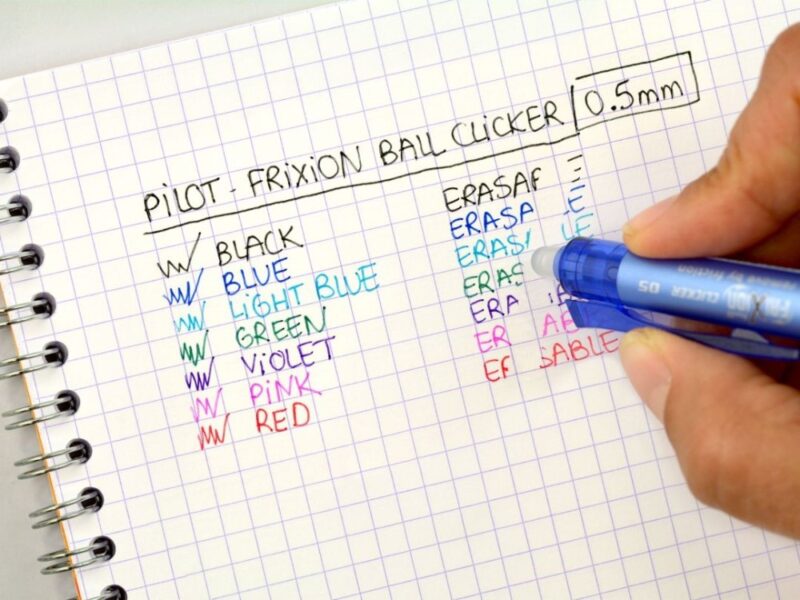 PiLOT - FRiXiON BALL CLiCKER 0.5mm
BLACK
BLUE
LiGHT BLUE
GREEN
ViOLET
PiNK
RED
ERASA E
ERASA E
ERAS LE
ERAS
ERA
ER AB
ER SABLE
FriXion
CLICKER 05